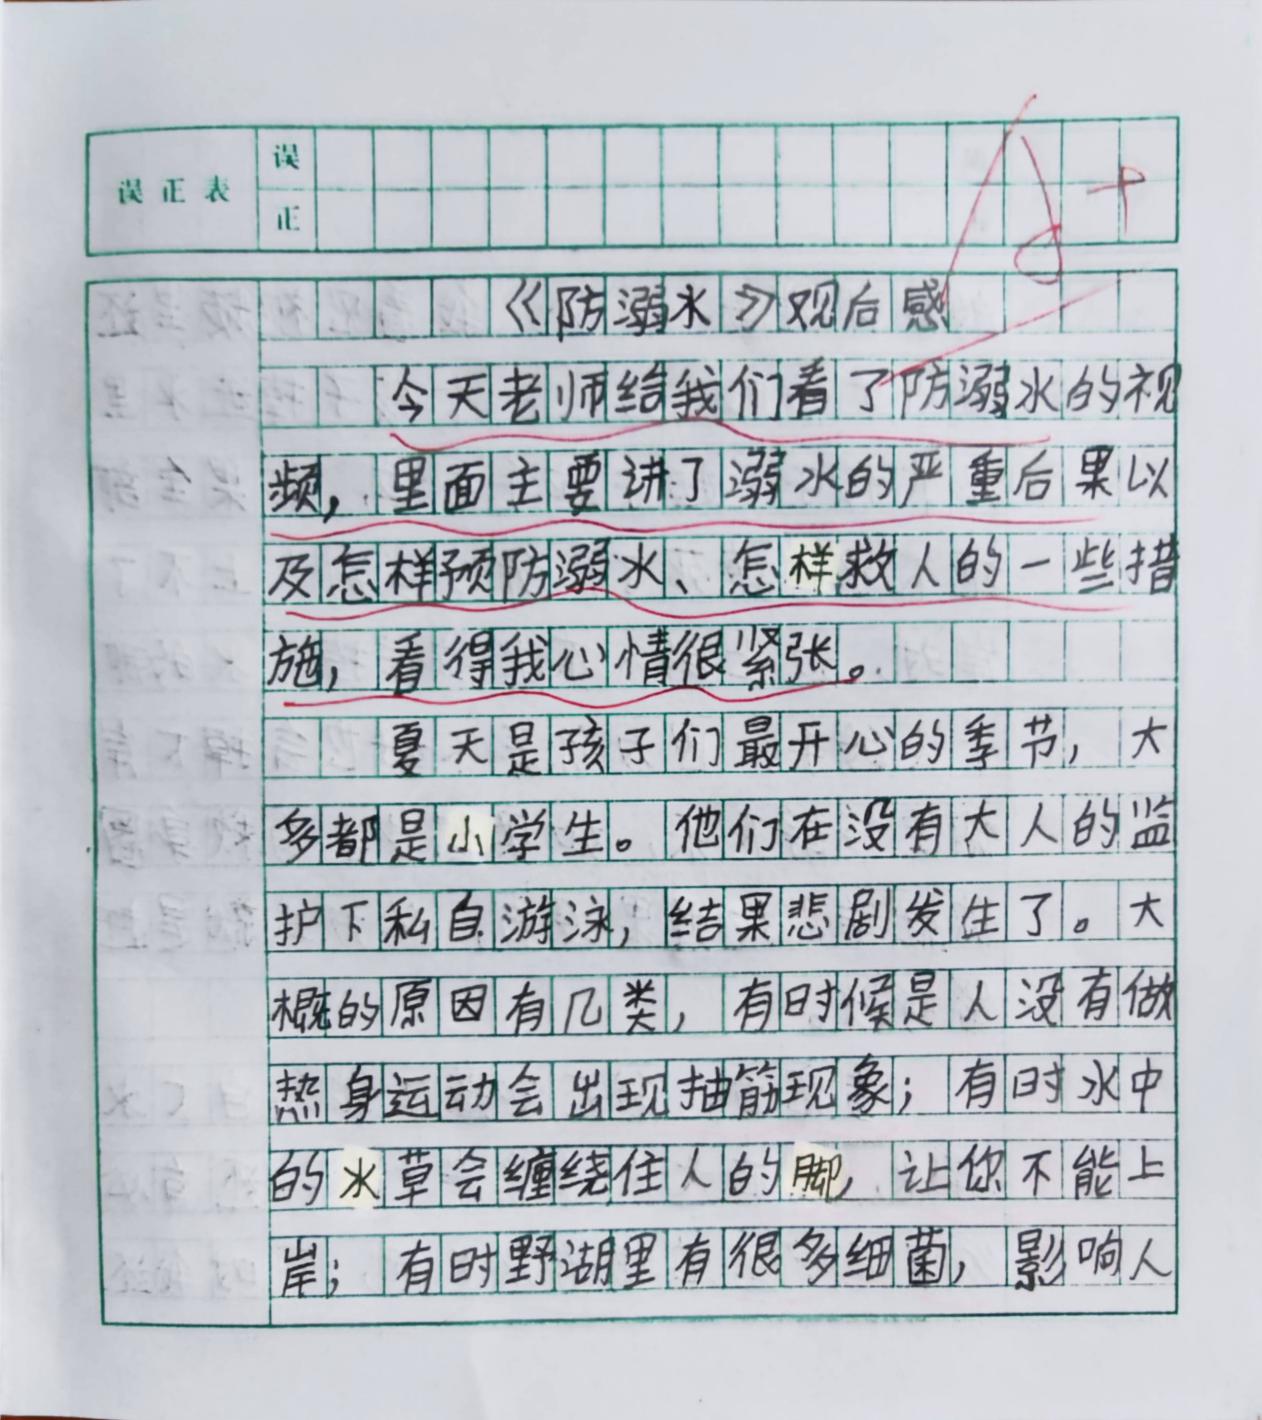 误正表
误
正
A+
《防溺水》观后感
今天老师给我们看了防溺水的视
频，里面主要讲了溺水的严重后果以
及怎样预防溺水、怎样救人的一些措
施，看得我心情很紧张。
夏天是孩子们最开心的季节，大
多都是小学生。他们在没有大人的监
护下私自游泳，结果悲剧发生了。大
概的原因有几类，有时候是人没有做
热身运动会出现抽筋现象；有时水中
的水草会缠绕住人的脚，让你不能上
岸；有时野湖里有很多细菌，影响人